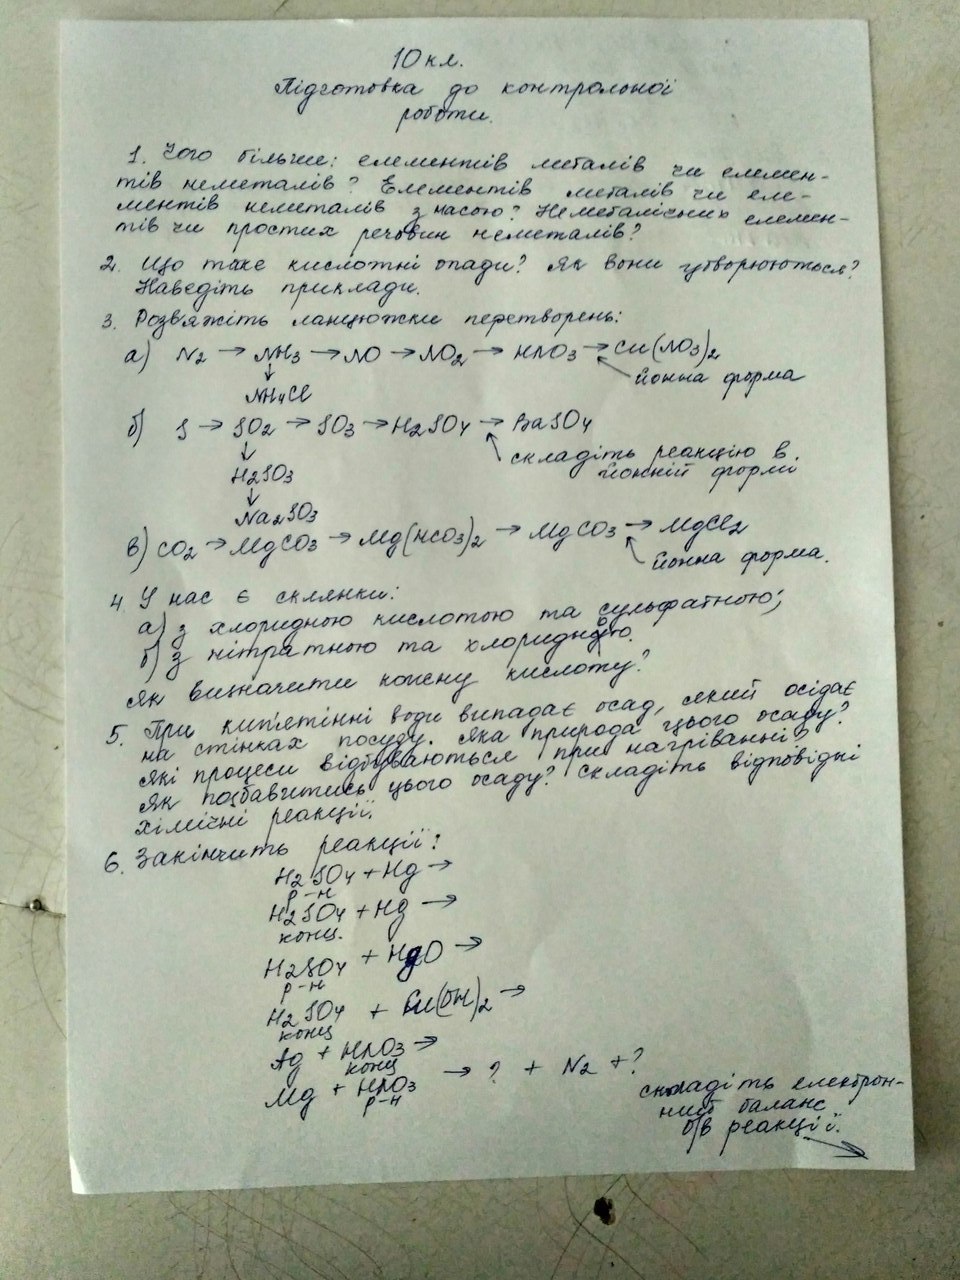 10 кл.
Підготовка до контрольної
роботи.
1. Чого більше: елементів металів чи елемен-
тів неметалів? Елементів металів чи еле-
ментів неметалів з масою? Неметалічних елемен-
тів чи простих речовин неметалів?
2. Що таке кислотні опади? Як вони утворюються?
Наведіть приклади.
3. Розв'яжіть ланцюжки перетворень:
а) N2 → NH3 → NO → NO2 → HNO3 → Cu(NO3)2
↓ йонна форма
NH4Cl
б) S → SO2 → SO3 → H2SO4 → BaSO4
↓ складіть реакцію в
H2SO3 йонній формі
↓
Na2SO3
в) CO2 → MgCO3 → Mg(HCO3)2 → MgCO3 → MgCl2
йонна форма.
4. У нас є склянки:
а) з хлоридною кислотою та сульфатною;
б) з нітратною та хлоридною.
Як визначити кожну кислоту?
5. При кип'ятінні води випадає осад, який осідає
на стінках посуду. Яка природа цього осаду?
Які процеси відбуваються при нагріванні?
Як позбавитись цього осаду? Складіть відповідні
хімічні реакції.
6. Закінчить реакції:
H2SO4 + Hg →
р-н
H2SO4 + Hg →
конц.
H2SO4 + HgO →
р-н
H2SO4 + Cu(OH)2 →
конц
Ag + HNO3 →
конц
Mg + HNO3 → ? + N2 + ?
р-н
складіть електрон-
ний баланс
о/в реакції.